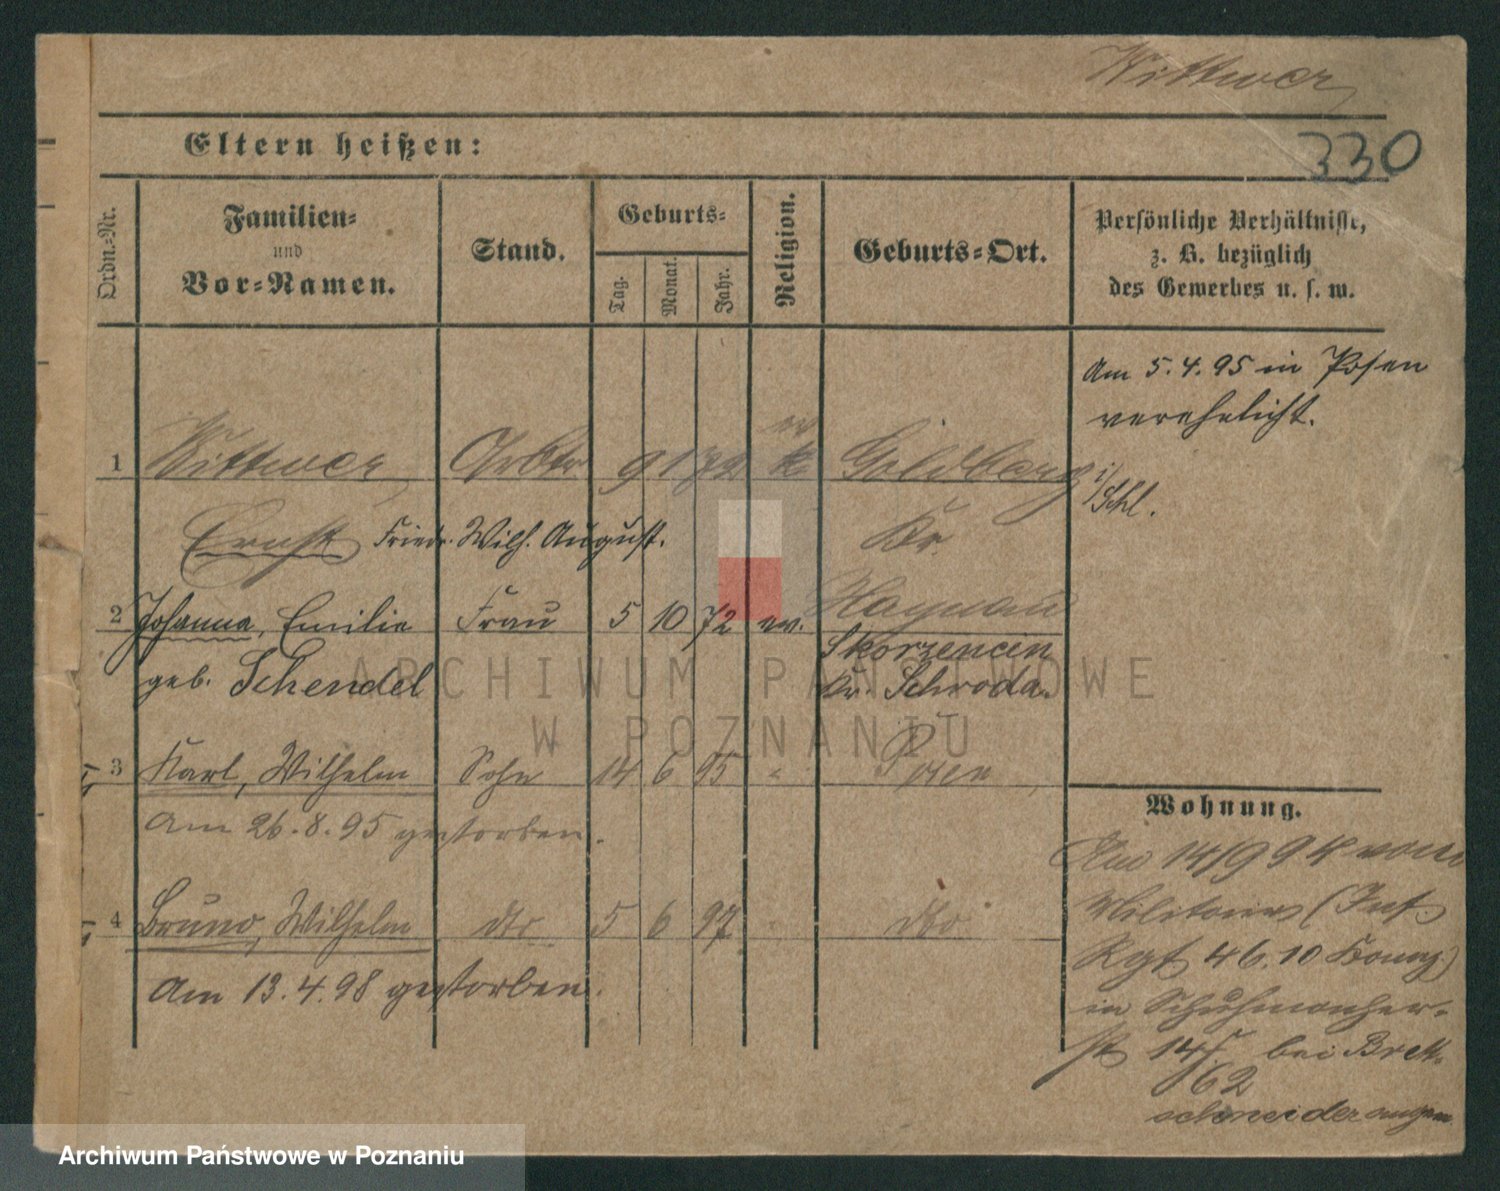 Wittwer
330
Eltern heißen:
Ordn.-Nr.
Familien-
und
Vor-Namen.
Stand.
Geburts-
Tag.
Monat.
Jahr.
Religion.
Geburts-Ort.
Persönliche Verhältnisse,
z. B. bezüglich
des Gewerbes u. s. w.
Am 5.4.95 in Posen
verehelicht.
ev
1 Wittwer Arbtr 9 1 72 k Goldberg i/Schl.
Ernst Friedr. Wilh. August. Kr.
Haynau
2 Johanna, Emilie Frau 5 10 72 ev. Skorzencin
geb. Schendel Kr. Schroda.
3 Karl, Wilhelm Sohn 14 6 95 " Posen
Am 26.8.95 gestorben.
4 Bruno, Wilhelm dto 5 6 97 dto
Am 13.4.98 gestorben.
Wohnung.
Am 14/9 94 vom
Militair (Inf.
Rgt 46. 10 Komp)
in
14 bei
62
schneider
ARCHIWUM PAŃSTWOWE
W POZNANIU
Archiwum Państwowe w Poznaniu